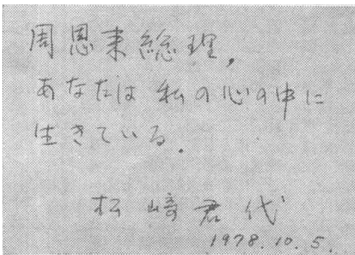 周恩来総理,
あなたは私の心の中に
生きている.
松﨑君代
1978.10.5.